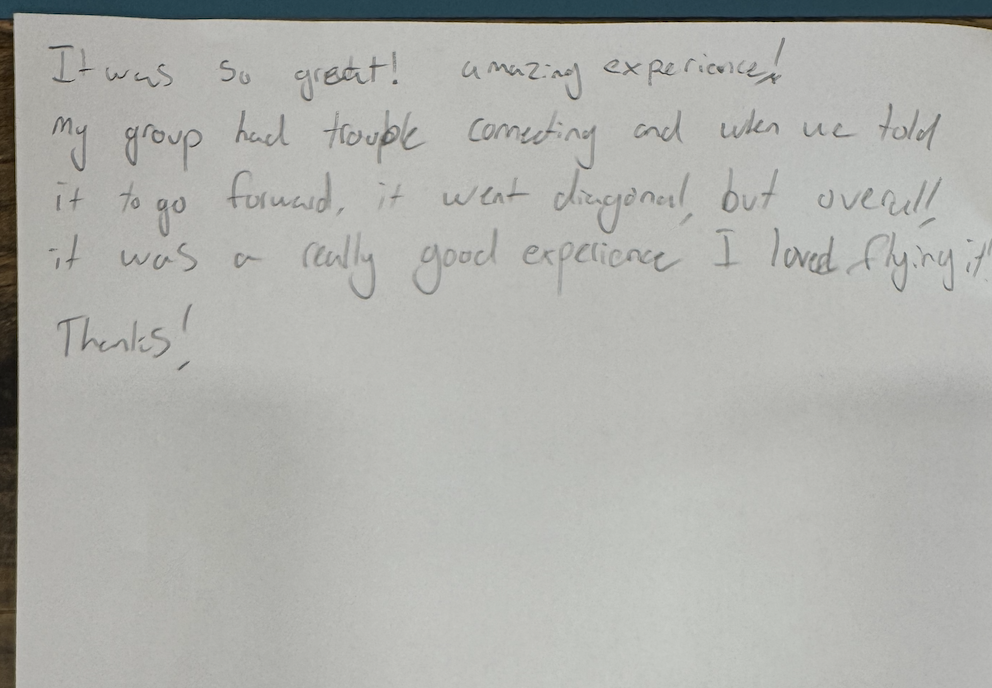 It was so great! amazing experience!
My group had trouble connecting and when we told
it to go forward, it went diagonal, but overall,
it was a really good experience I loved flying it!
Thanks!